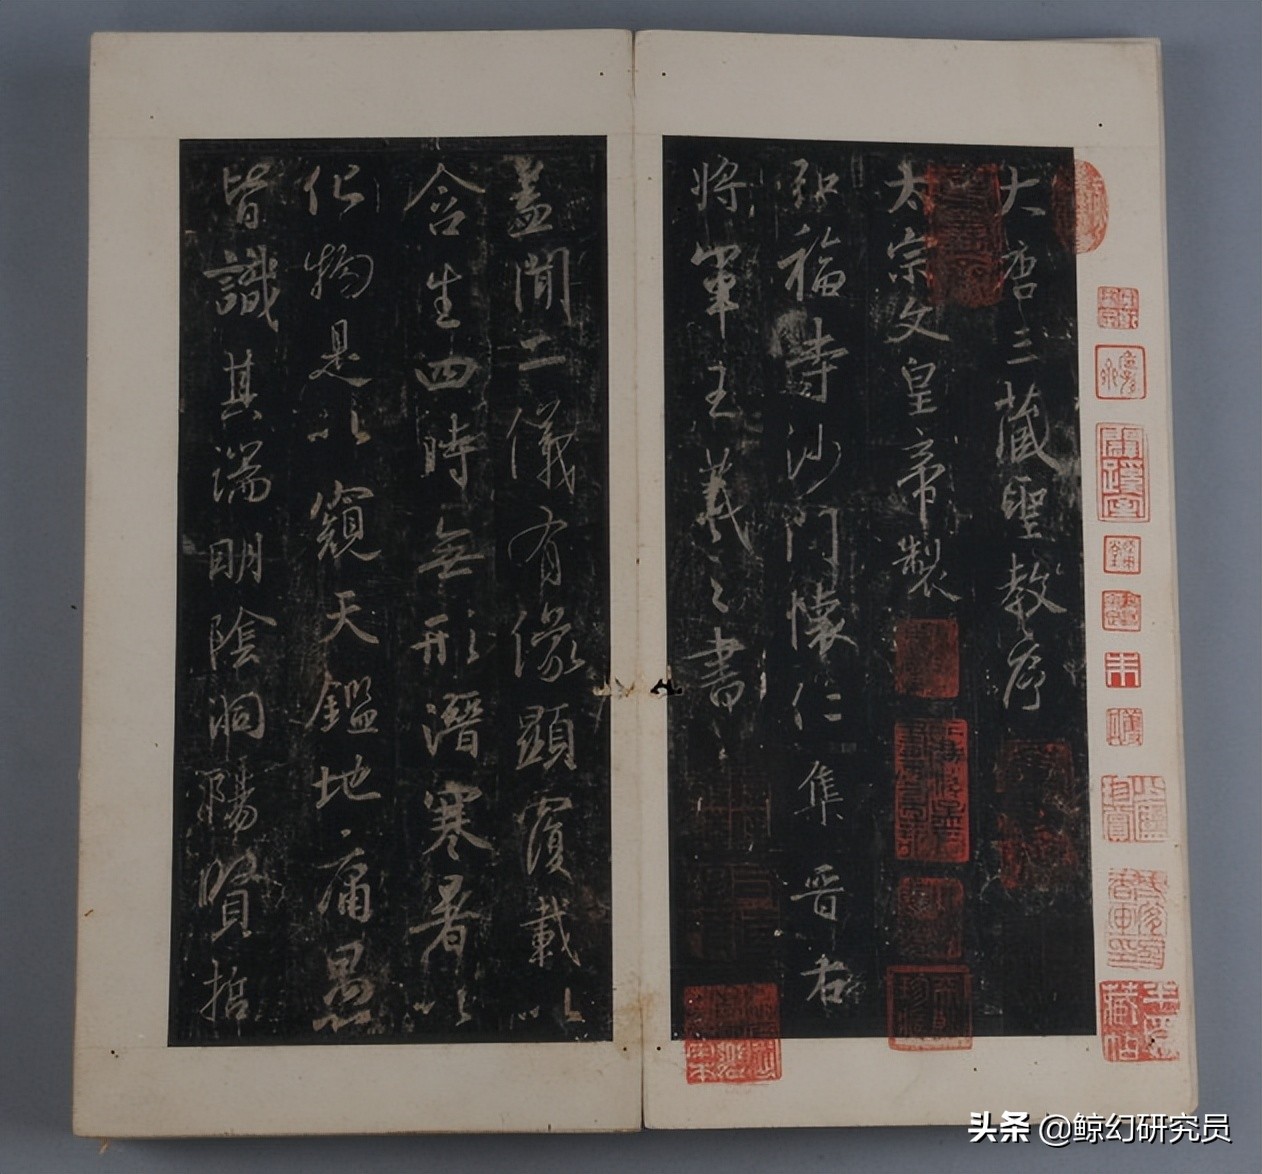 大唐三藏聖教序
太宗文皇帝製
弘福寺沙門懷仁集晉右
將軍王羲之書
蓋聞二儀有像顯覆載以
含生四時無形潛寒暑以
化物是以窺天鑑地庸愚
皆識其端明陰洞陽賢哲
朱
頭条 @鲸幻研究员